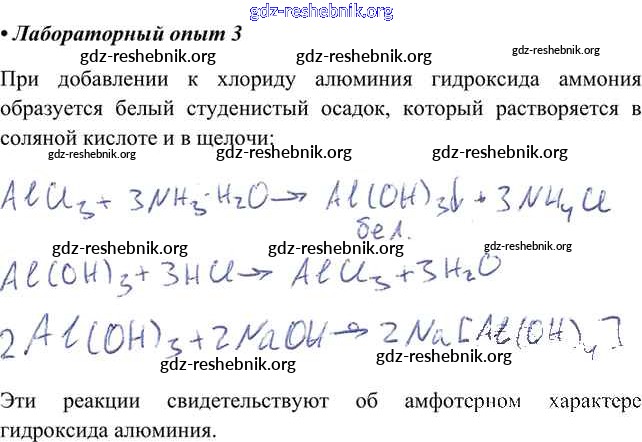 gdz-reshebnik.org
• Лабораторный опыт 3
gdz-reshebnik.org gdz-reshebnik.org gdz-reshebnik.org
При добавлении к хлориду алюминия гидроксида аммония
gdz-reshebnik.org gdz-reshebnik.org
образуется белый студенистый осадок, который растворяется в
соляной кислоте и в щелочи:
gdz-reshebnik.org gdz-reshebnik.org gdz-reshebnik.org
AlCl3 + 3NH3·H2O → Al(OH)3↓ + 3NH4Cl
бел.
gdz-reshebnik.org gdz-reshebnik.org gdz-reshebnik.org
Al(OH)3 + 3HCl → AlCl3 + 3H2O
gdz-reshebnik.org gdz-reshebnik.org
2Al(OH)3 + 2NaOH → 2Na[Al(OH)4]
gdz-reshebnik.org gdz-reshebnik.org gdz-reshebnik.org
Эти реакции свидетельствуют об амфотерном характере
gdz-reshebnik.org gdz-reshebnik.org
гидроксида алюминия.